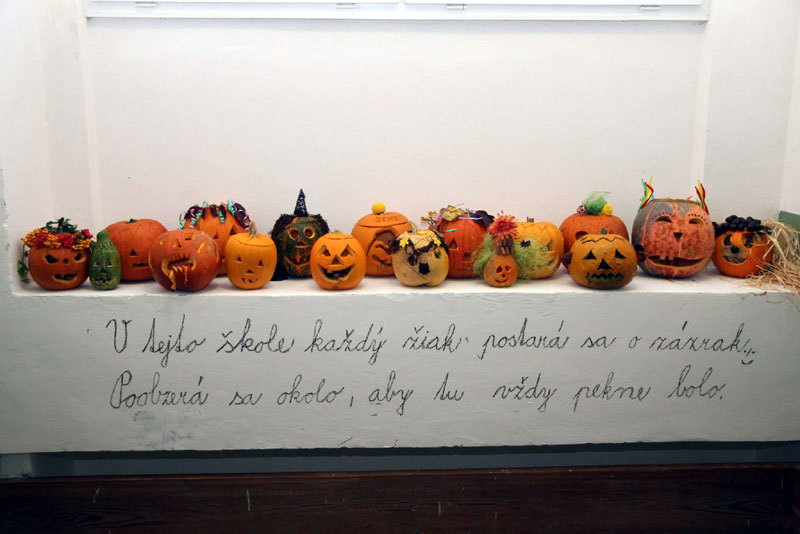 V tejto škole každý žiak postará sa o zázrak.
Poobzerá sa okolo, aby tu vždy pekne bolo.